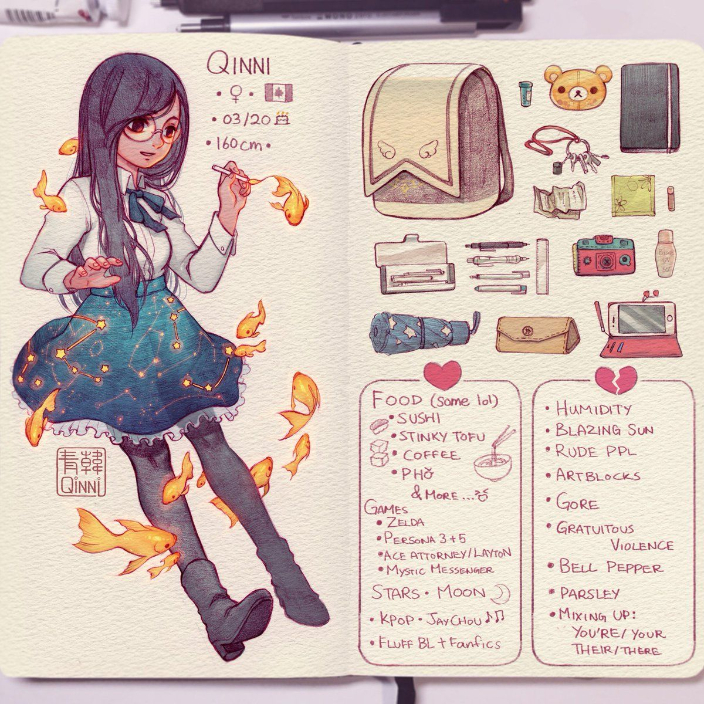 QINNI
• ♀ •
• 03/20
• 160cm •
青韓
Qinni
FOOD (some lol)
• SUSHI
• STINKY TOFU
• COFFEE
• PHỞ
& MORE...
GAMES
• ZELDA
• PERSONA 3+5
• ACE ATTORNEY/LAYTON
• MYSTIC MESSENGER
STARS • MOON
• KPOP • JAY CHOU ♪♫
• FLUFF BL + Fanfics
• HUMIDITY
• BLAZING SUN
• RUDE PPL
• ARTBLOCKS
• GORE
• GRATUITOUS
VIOLENCE
• BELL PEPPER
• PARSLEY
• MIXING UP:
YOU'RE/YOUR
THEIR/THERE